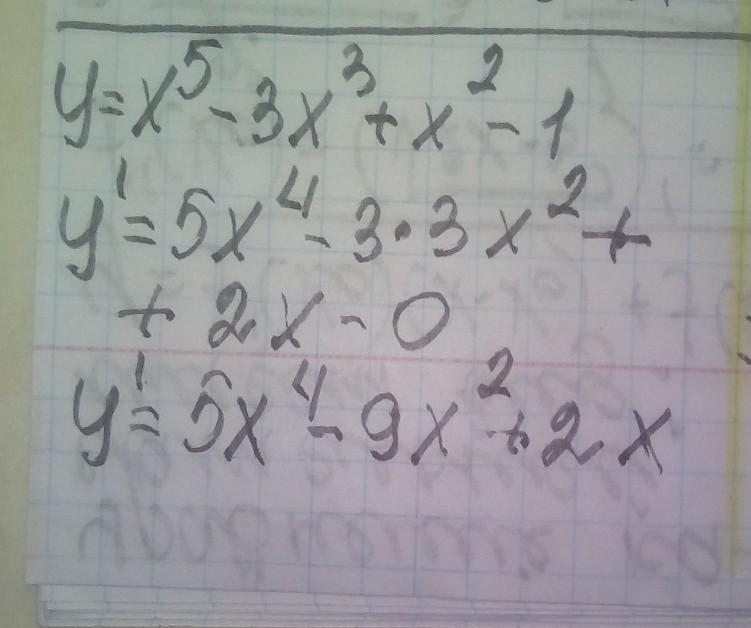 y=x⁵-3x³+x²-1
y'=5x⁴-3·3x²+
+2x-0
y'=5x⁴-9x²+2x